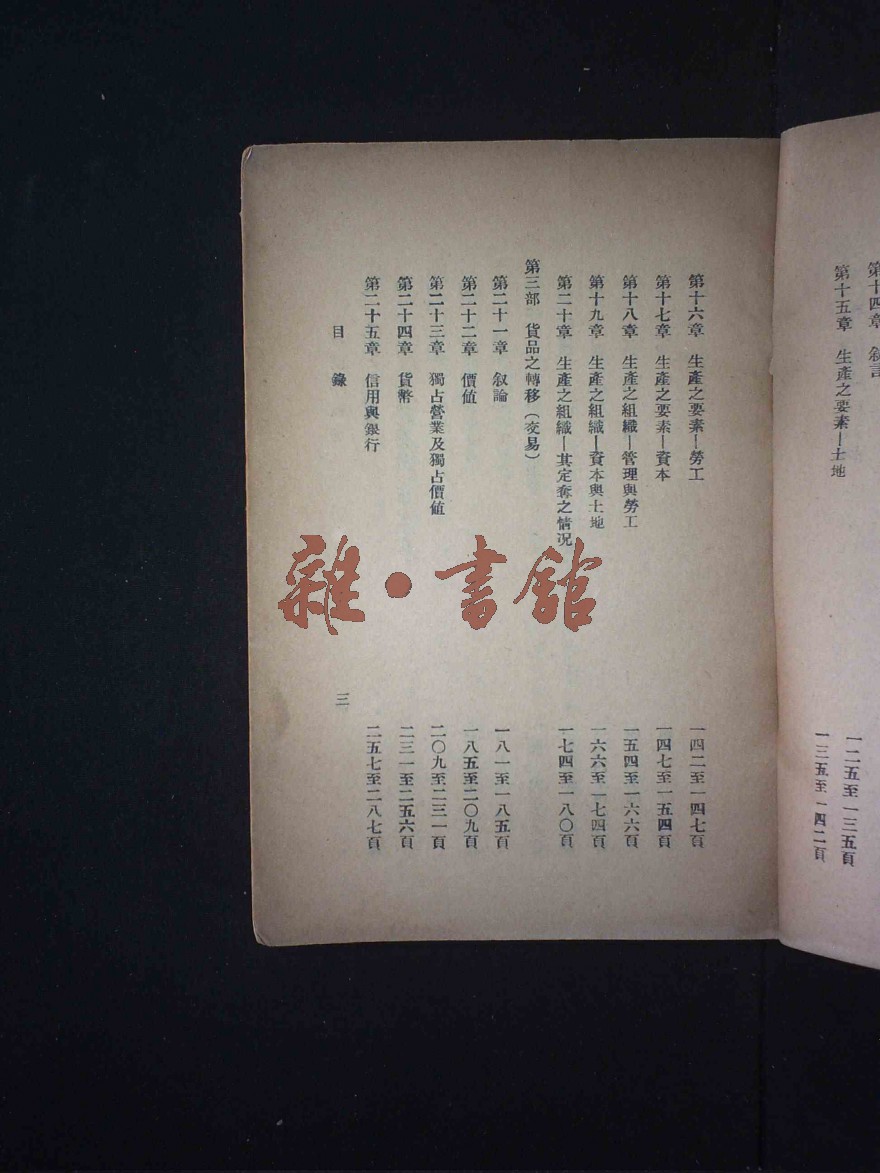 第十四章 叙言 一二五至一三五頁
第十五章 生產之要素—土地 一三五至一四二頁
第十六章 生產之要素—勞工 一四二至一四七頁
第十七章 生產之要素—資本 一四七至一五四頁
第十八章 生產之組織—管理與勞工 一五四至一六六頁
第十九章 生產之組織—資本與土地 一六六至一七四頁
第二十章 生產之組織—其定奪之情况 一七四至一八〇頁
第三部 貨品之轉移（交易）
第二十一章 叙論 一八一至一八五頁
第二十二章 價値 一八五至二〇九頁
第二十三章 獨占營業及獨占價値 二〇九至二三一頁
第二十四章 貨幣 二三一至二五六頁
第二十五章 信用與銀行 二五七至二八七頁
目錄 三
雜·書館